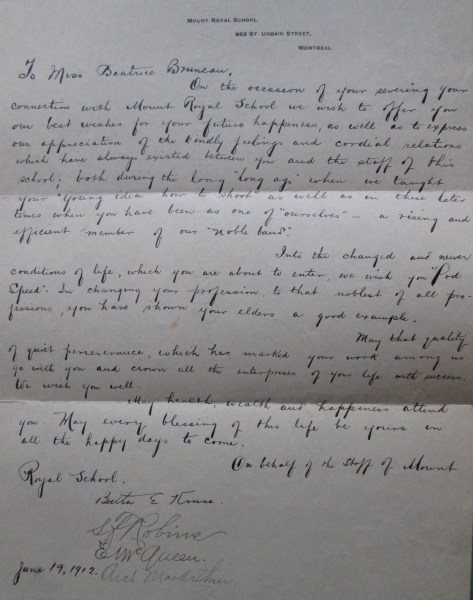 MOUNT ROYAL SCHOOL,
ST. URBAIN STREET,
MONTREAL.
To Miss Beatrice Bruneau.
On the occasion of your severing your
connection with Mount Royal School we wish to offer you
our best wishes for your future happiness, as well as to express
our appreciation of the kindly feelings and cordial relations
which have always existed between you and the staff of this
school; both during the long "long ago" when we taught
your "young idea how to shoot" as well as in these later
times when you have been as one of "ourselves" — a rising and
efficient member of our "noble band".
Into the changed and newer
conditions of life, which you are about to enter, we wish you "God
Speed". In changing your profession, to that noblest of all pro-
fessions, you have shown your elders a good example.
May that quality
of quiet perseverance, which has marked your work among us
go with you and crown all the enterprises of your life with success.
We wish you well.
May health, wealth and happiness attend
you May every blessing of this life be yours in
all the happy days to come.
On behalf of the Staff of Mount
Royal School.
E
S F Robins
E McQueen.
June 19, 1912.